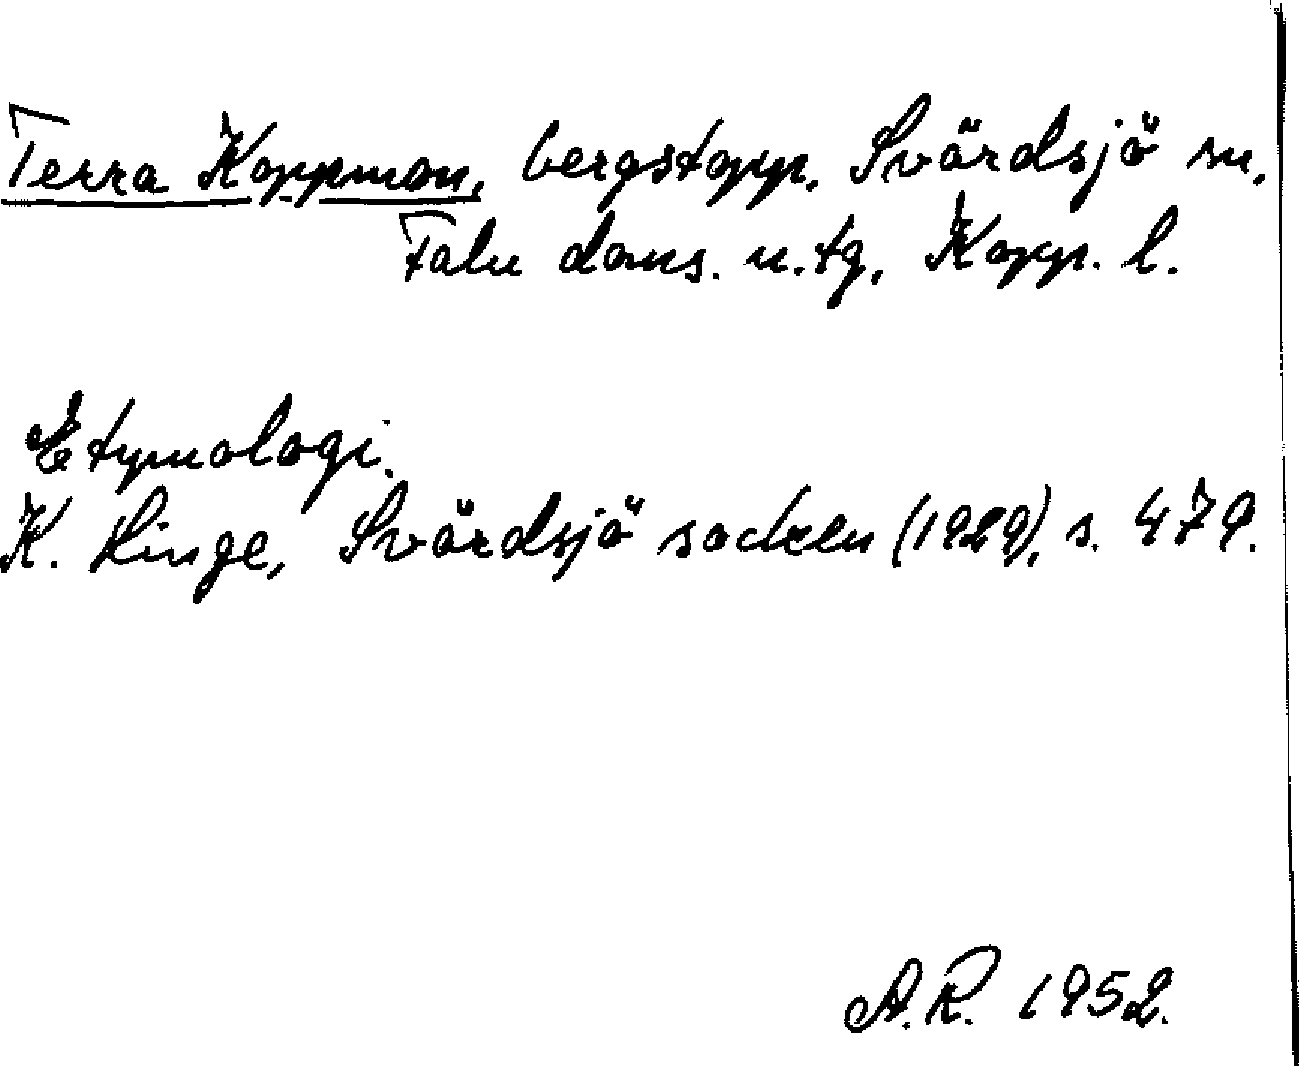 Terra Koppmon, bergstopp. Svärdsjö sn,
Falu doms. n. tg, Kopp. l.
Etymologi.
K. Linge, Svärdsjö socken (1929), s. 479.
A.R. 1952.